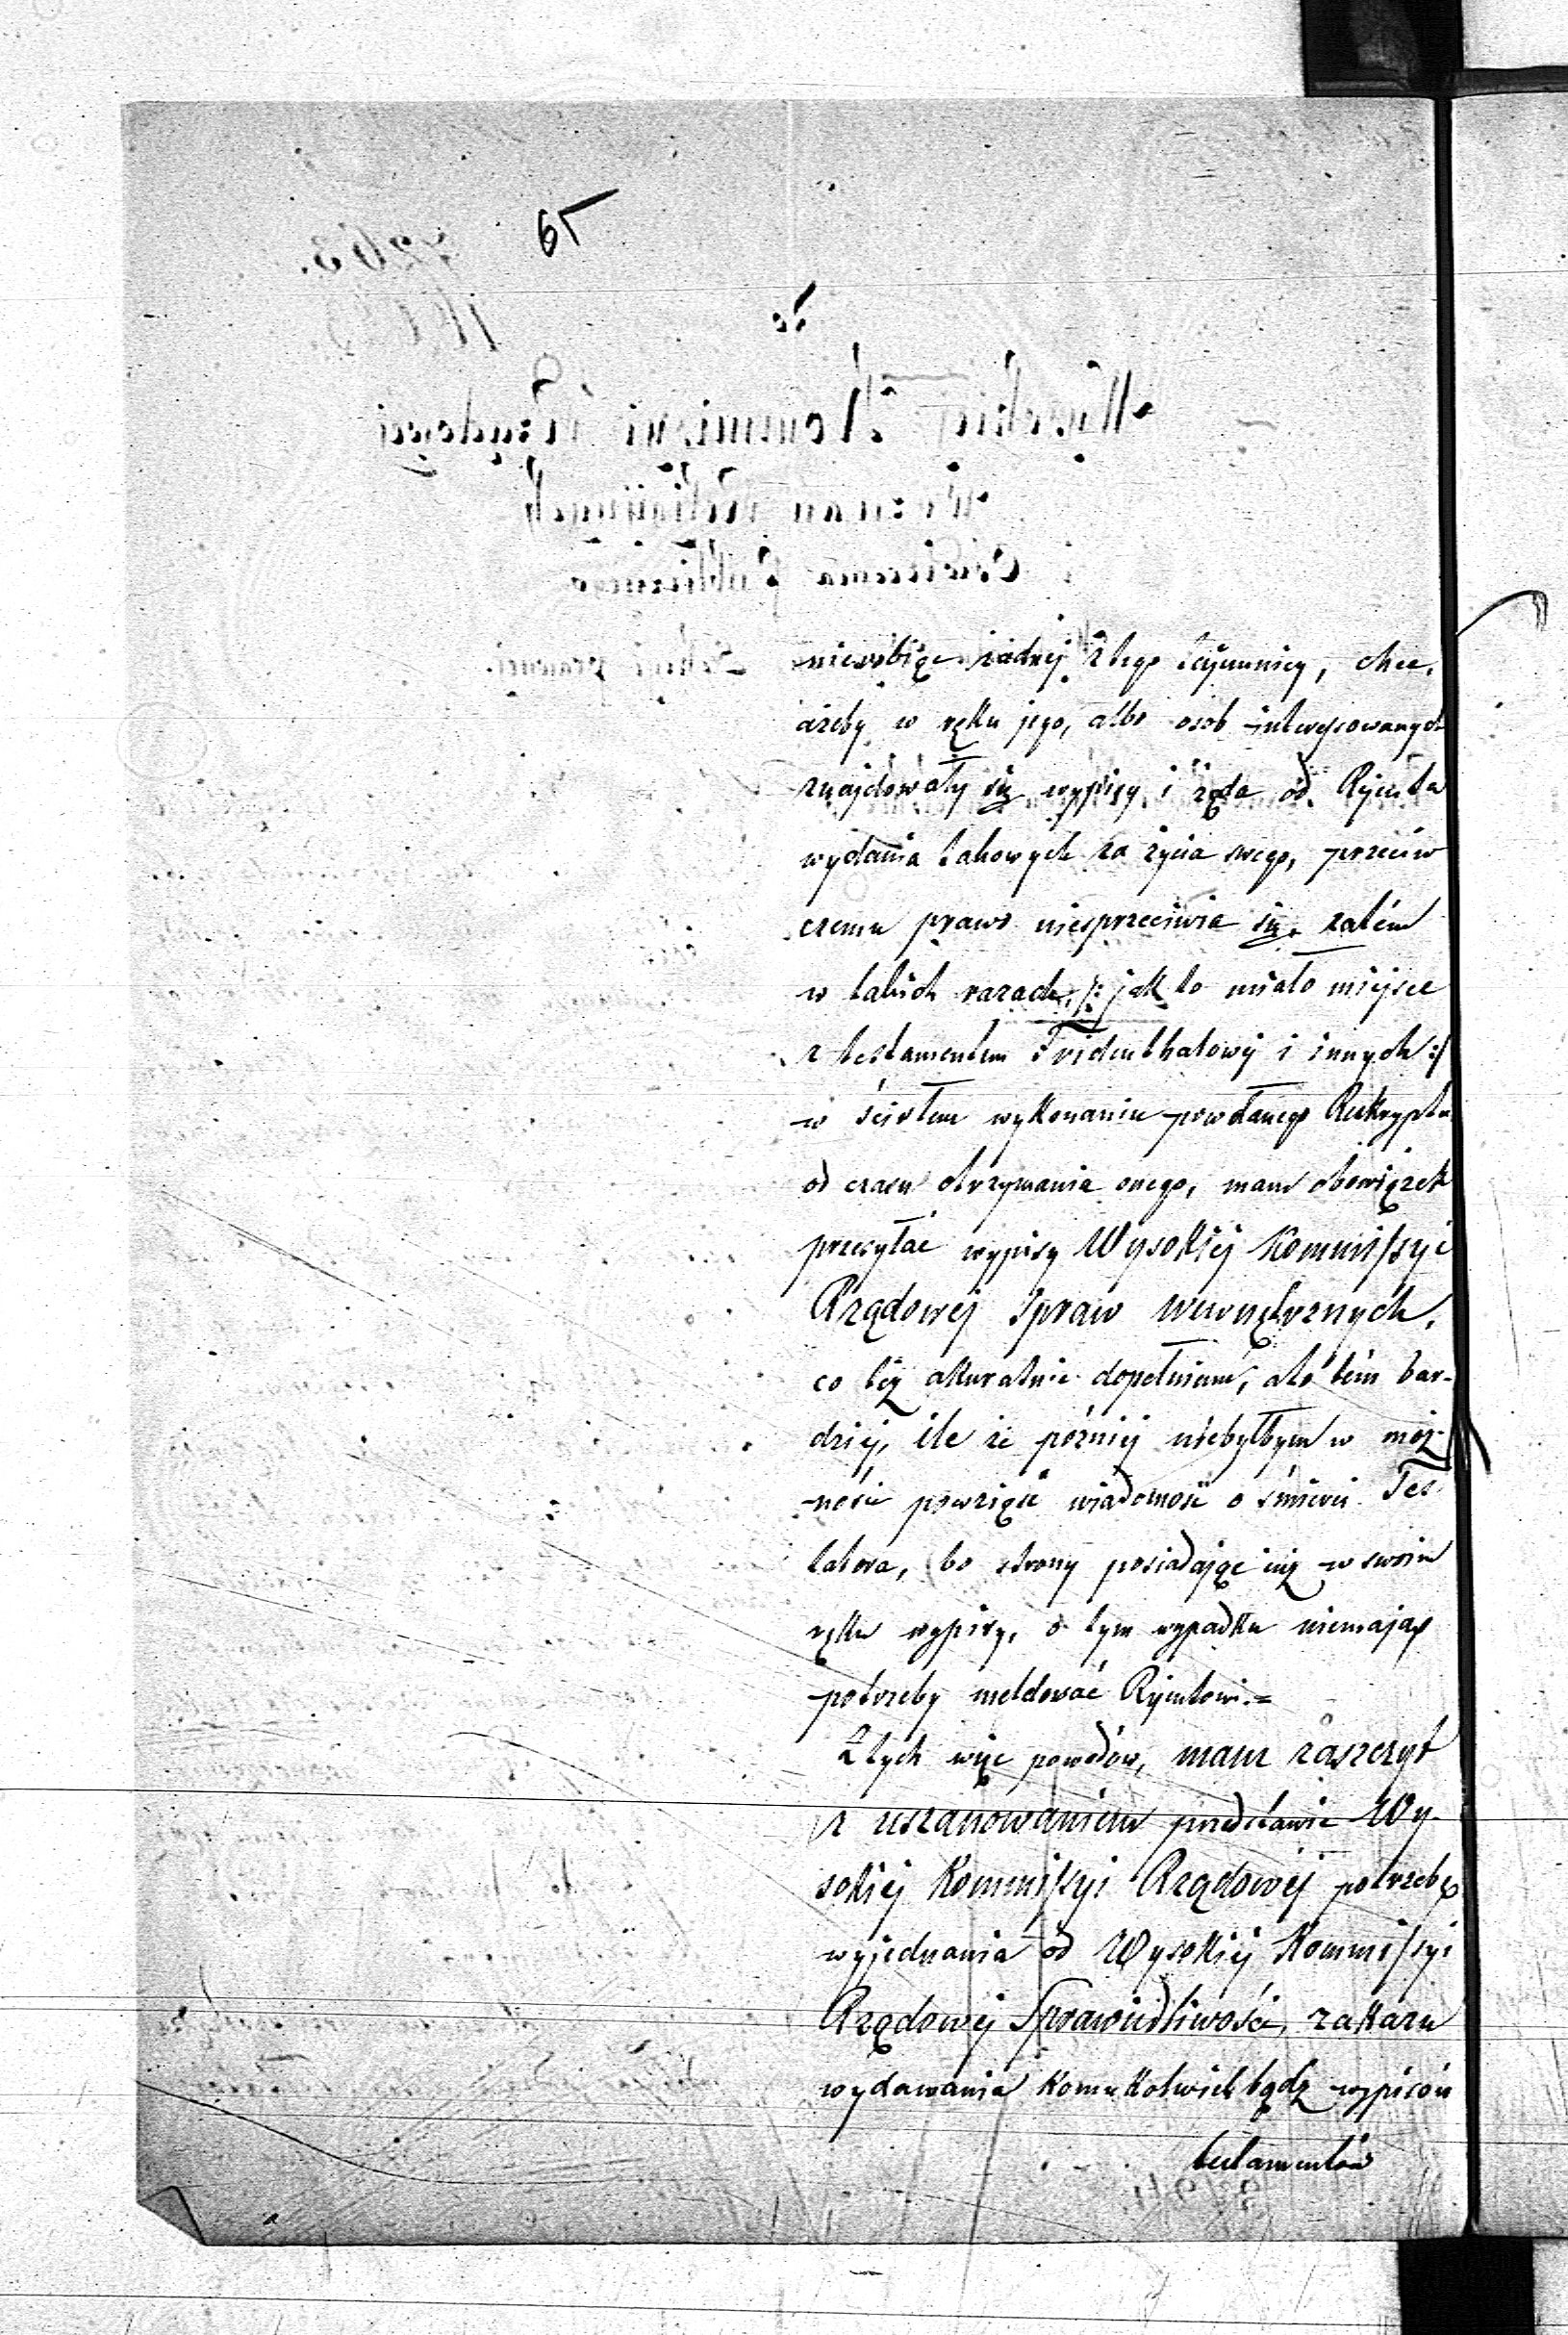 65
nierobiąc żadnej z tego tajemnicy, chce,
ażeby w ręku jego, albo osob interessowanych
znajdowały się wypisy i żąda od Rejenta
wydania takowych za życia swego, przeciw
czemu prawo niesprzeciwia się, zatém
w takich razach, /: jak to miało miejsce
z testamentem Fridenthalowej i innych :/
w ścisłem wykonaniu powołanego Reskryptu
od czasu otrzymania onego, mam obowiązek
przesyłać wypisy Wysokiej Kommissyi
Rządowej Spraw Wewnętrznych,
co też akuratnie dopełniam, a to tém bar-
dziej, ile że później niebyłbym w moż-
ności powziąść wiadomość o śmierci Tes-
tatora, bo strony posiadając już w swoim
ręku wypisy, o tym wypadku niemają
potrzeby meldować Rejentowi. =
Z tych więc powodów, mam zaszczyt
z uszanowaniem przedstawić Wy-
sokiej Kommissyi Rządowej potrzebę
wyjednania od Wysokiej Kommissyi
Rządowej Sprawiedliwości, zakazu
wydawania komukolwiek bądź wypisów
testamentów